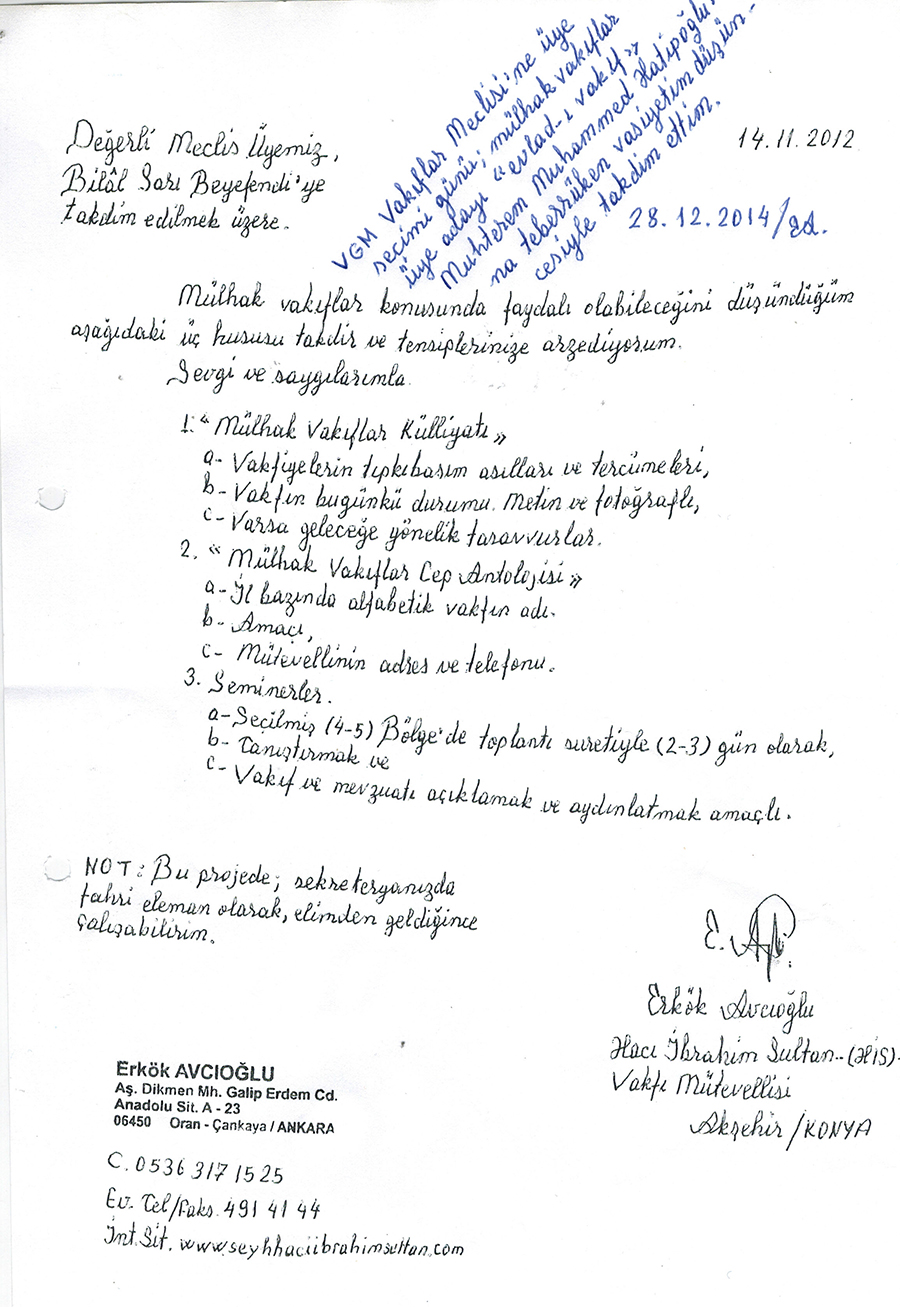 VGM Vakıflar Meclisi'ne üye
seçimi günü; mülhak vakıflar
üye adayı "evlad-ı vakıf"
Muhterem Muhammed Hatipoğlu'
na teberrüken vasiyetim düşün-
cesiyle takdim ettim.
28.12.2014/
14.11.2012
Değerli Meclis Üyemiz,
Bilâl Sarı Beyefendi'ye
takdim edilmek üzere.
Mülhak vakıflar konusunda faydalı olabileceğini düşündüğüm
aşağıdaki üç hususu takdir ve tensiplerinize arzediyorum.
Sevgi ve saygılarımla.
1. "Mülhak Vakıflar Külliyatı"
a- Vakfiyelerin tıpkıbasım asılları ve tercümeleri,
b- Vakfın bugünkü durumu. Metin ve fotoğraflı,
c- Varsa geleceğe yönelik tasavvurlar.
2. "Mülhak Vakıflar Cep Antolojisi"
a- İl bazında alfabetik vakfın adı.
b- Amaçı,
c- Mütevellinin adres ve telefonu.
3. Seminerler.
a- Seçilmiş (4-5) Bölge'de toplantı suretiyle (2-3) gün olarak,
b- Tanıştırmak ve
c- Vakıf ve mevzuatı açıklamak ve aydınlatmak amaçlı.
NOT: Bu projede; sekreteryanızda
fahri eleman olarak, elimden geldiğince
çalışabilirim.
Erkök Avcıoğlu
Hacı İbrahim Sultan-(HİS)-
Vakfı Mütevellisi
Akşehir/KONYA
Erkök AVCIOĞLU
Aş. Dikmen Mh. Galip Erdem Cd.
Anadolu Sit. A - 23
06450 Oran - Çankaya / ANKARA
C. 0536 317 15 25
Ev. Tel/Faks. 491 41 44
İnt.Sit. www.seyhhaciibrahimsultan.com